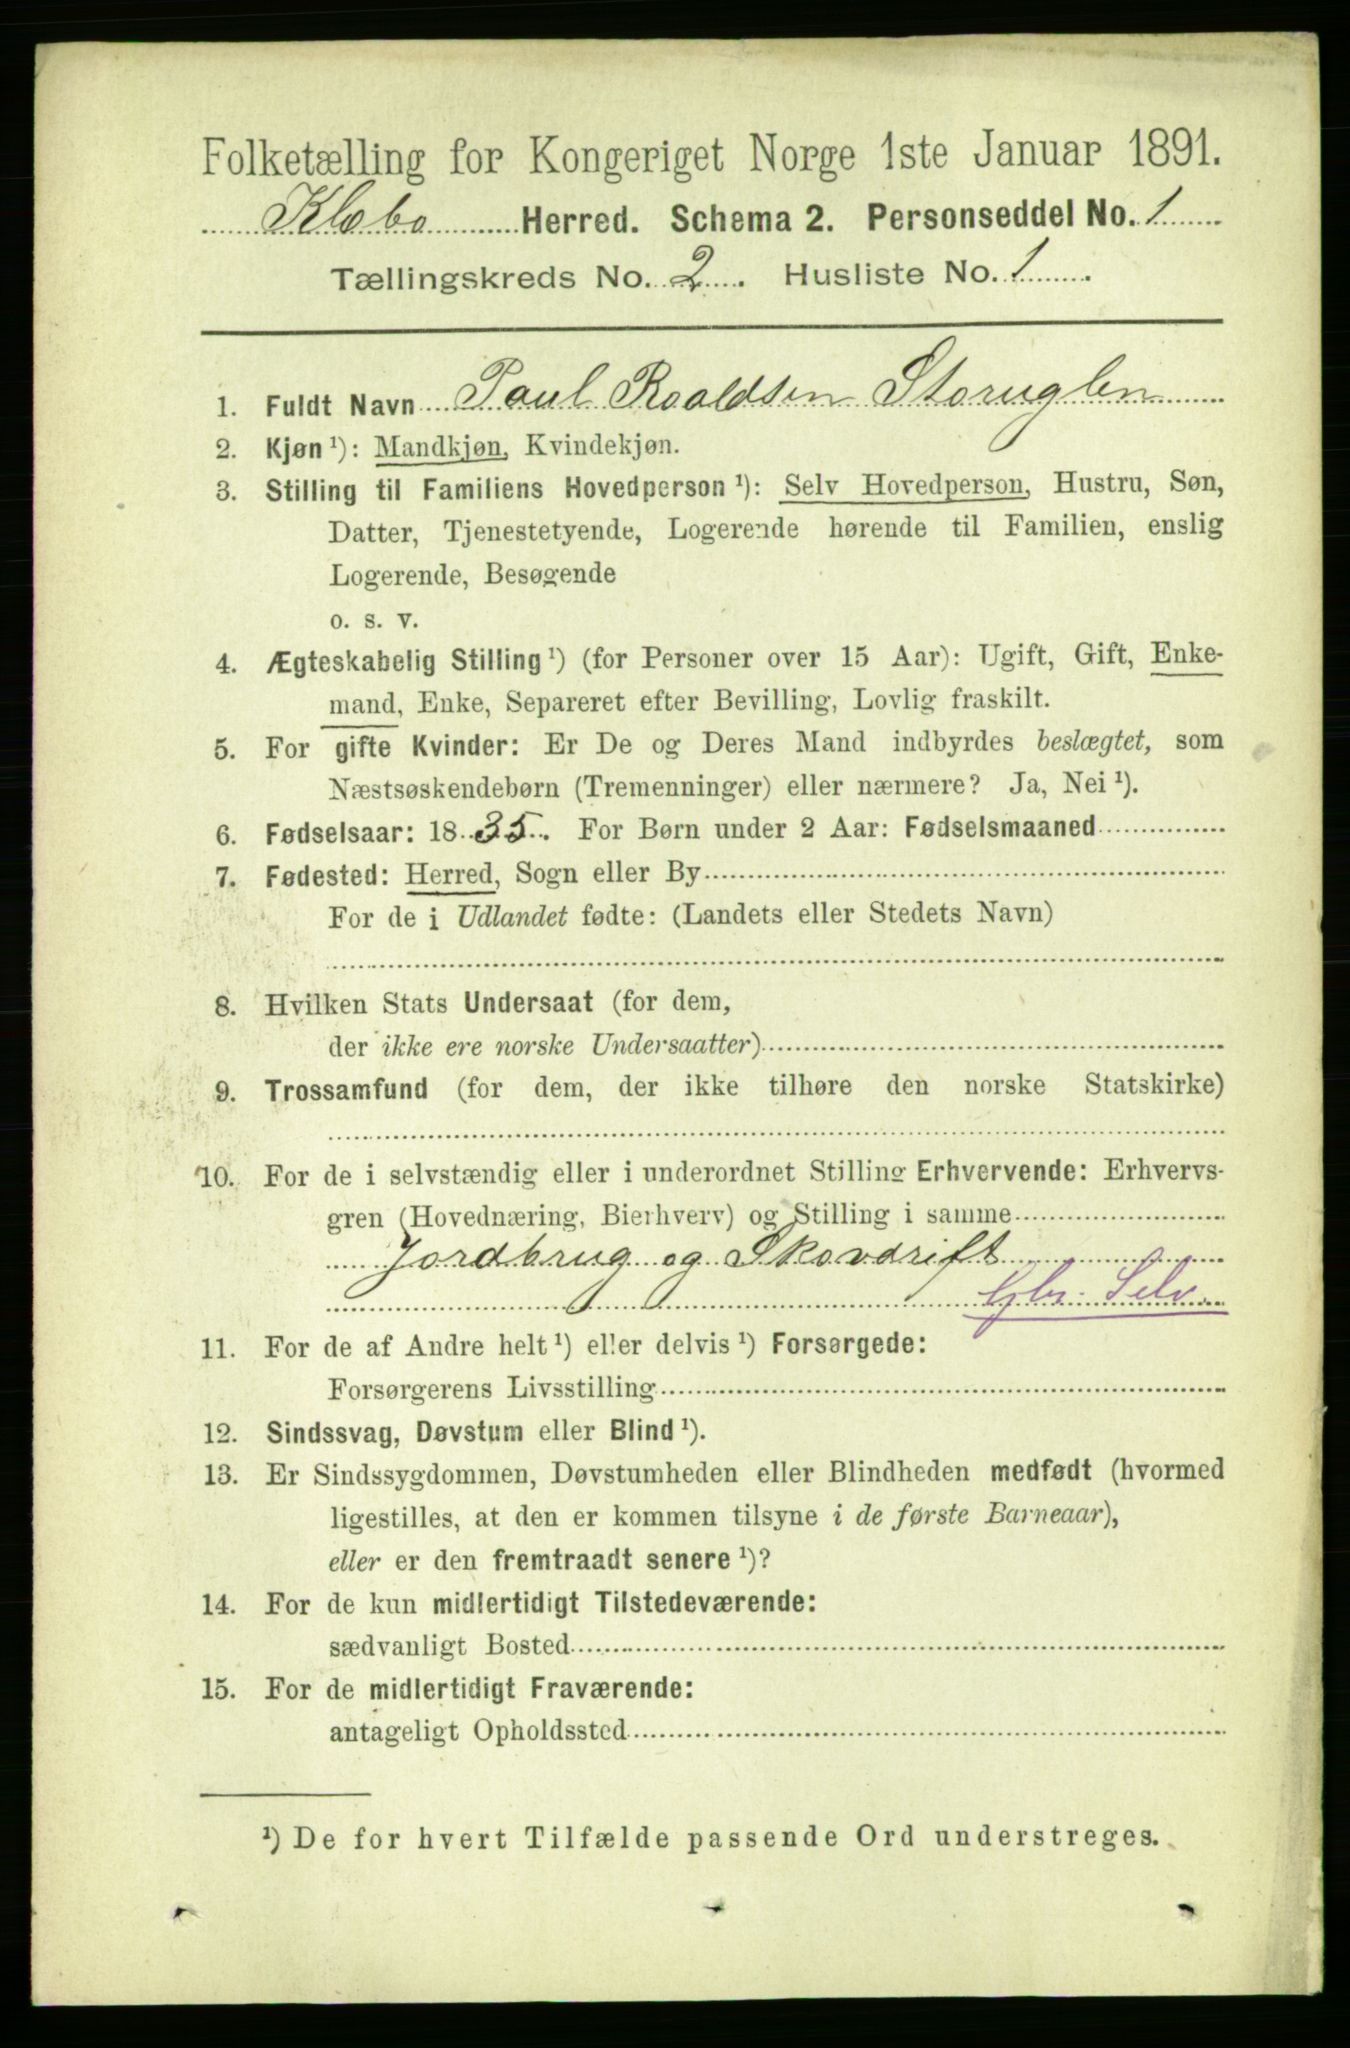 Folketælling for Kongeriget Norge 1ste Januar 1891.
Klæbo Herred. Schema 2. Personseddel No. 1
Tællingskreds No. 2. Husliste No. 1.
1. Fuldt Navn Paul Roaldsen Storuglen
2. Kjøn ¹): Mandkjøn, Kvindekjøn.
3. Stilling til Familiens Hovedperson ¹): Selv Hovedperson, Hustru, Søn,
Datter, Tjenestetyende, Logerende hørende til Familien, enslig
Logerende, Besøgende
o. s. v.
4. Ægteskabelig Stilling ¹) (for Personer over 15 Aar): Ugift, Gift, Enke-
mand, Enke, Separeret efter Bevilling, Lovlig fraskilt.
5. For gifte Kvinder: Er De og Deres Mand indbyrdes beslægtet, som
Næstsøskendebørn (Tremenninger) eller nærmere? Ja, Nei ¹).
6. Fødselsaar: 1835. For Børn under 2 Aar: Fødselsmaaned
7. Fødested: Herred, Sogn eller By
For de i Udlandet fødte: (Landets eller Stedets Navn)
8. Hvilken Stats Undersaat (for dem,
der ikke ere norske Undersaatter)
9. Trossamfund (for dem, der ikke tilhøre den norske Statskirke)
10. For de i selvstændig eller i underordnet Stilling Erhvervende: Erhvervs-
gren (Hovednæring, Bierhverv) og Stilling i samme
Jordbrug og Skovdrift
Gbr. Selv.
11. For de af Andre helt ¹) eller delvis ¹) Forsørgede:
Forsørgerens Livsstilling
12. Sindssvag, Døvstum eller Blind ¹).
13. Er Sindssygdommen, Døvstumheden eller Blindheden medfødt (hvormed
ligestilles, at den er kommen tilsyne i de første Barneaar),
eller er den fremtraadt senere ¹)?
14. For de kun midlertidigt Tilstedeværende:
sædvanligt Bosted
15. For de midlertidigt Fraværende:
antageligt Opholdssted
¹) De for hvert Tilfælde passende Ord understreges.